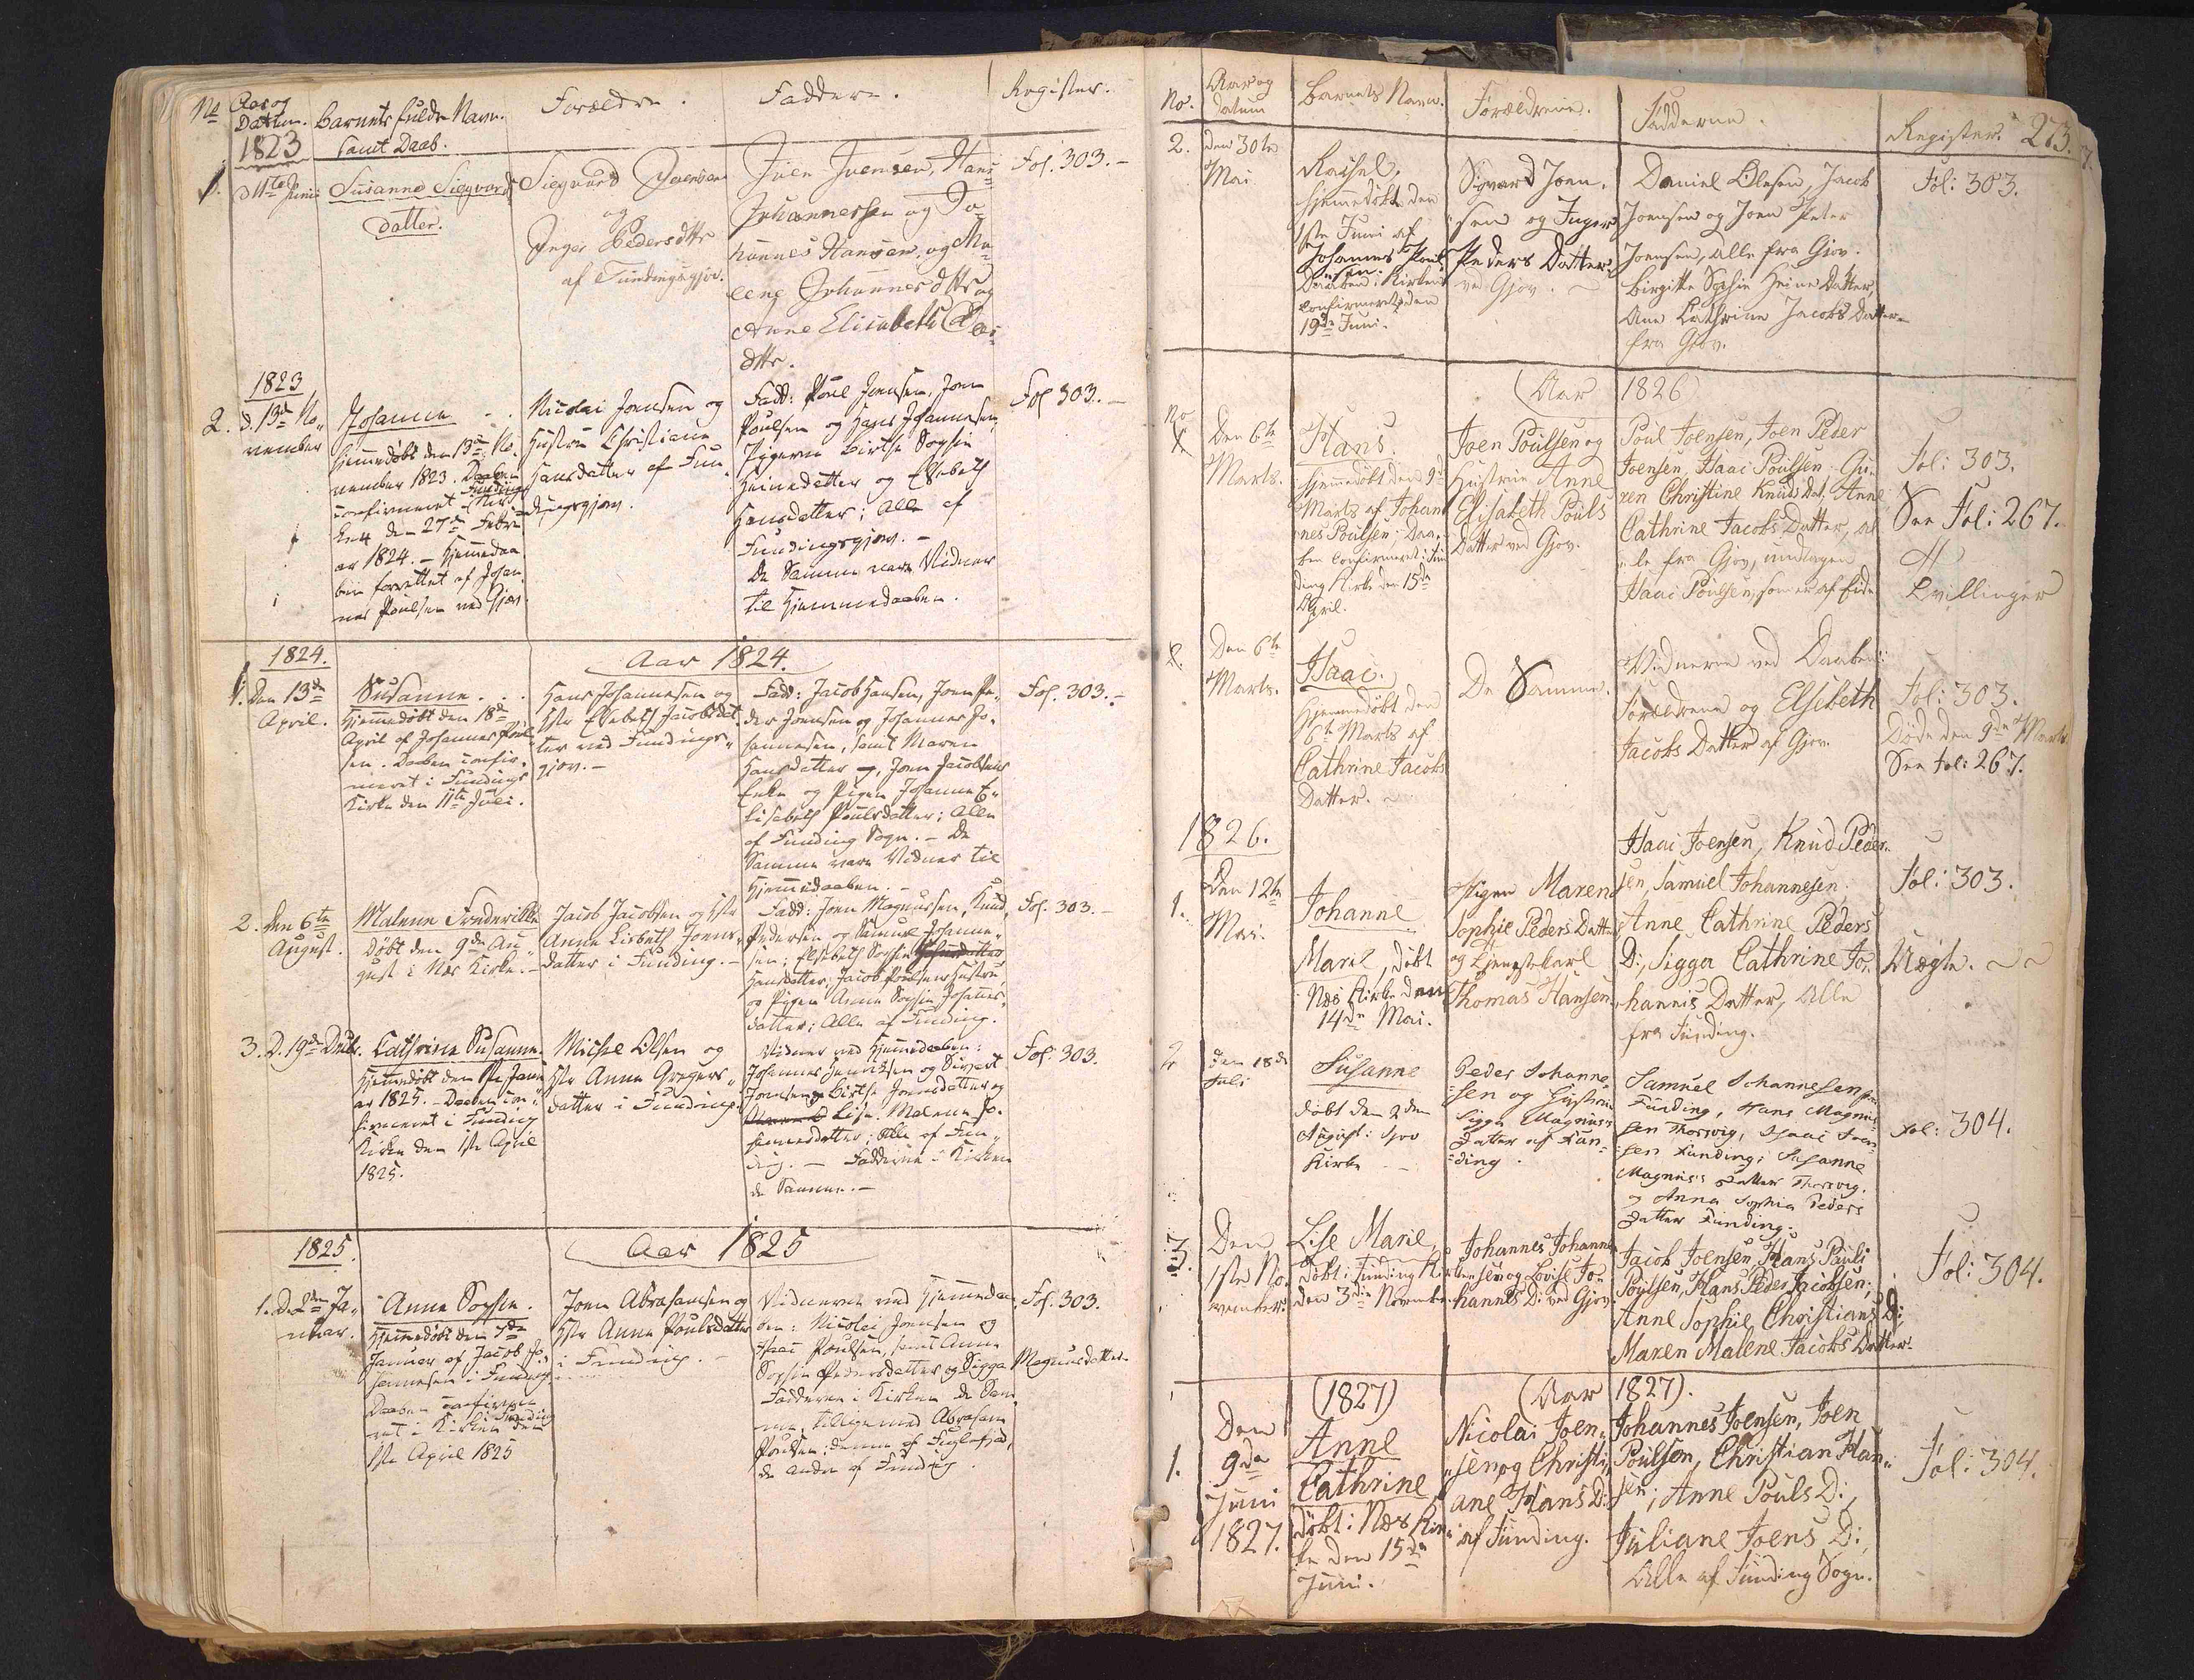 No
Aar og
Datum.
Barnets fulde Navn.
samt Daab.
Forældre.
Faddere.
Register.
1823
1.
d 11te Junii
Susanne Siegvards
datter.
Siegvard Joensen
og
Inger Pedersdttr
af Fundingsgjov.
Joen Joensen, Hans
Johannessen og Jo-
hannes Hansen, og Ma-
lene Johannesdttr og
Anne Elisabeth
dttr.
Fol. 303.-
1823
2.
d. 13de No-
vember
Johanne
hjemmedöbt den 13de No-
vember 1823. Daaben
confirmeret i Fundings
Kirke den 27de Febru-
ar 1824. - Hjemmedaa-
ben forrettet af Johan-
nes Poulsen ved Gjov.
Nicolai Joensen og
Hustrue Christiane
Hansdatter af Fun-
dingsgjov.
Fadd: Poul Joensen, Joen
Poulsen og Hans Johannesen,
Pigerne Birthe Sophie
Heinedatter og Elsebeth
Hansdatter; Alle af
Fundingsgjov. -
De Samme vare Vidner
til Hjemmedaaben.
Fol 303.-
1824.
Aar 1824.
1. Den 13de
April.
Susanne.
hjemmedöbt den 18de
April af Johannes Poul-
sen. Daaben confir-
meret i Fundings
Kirke den 11te Juli.
Hans Johannesen og
Hstr Elsebeth Jacobsdat-
ter ved Fundings-
gjov.-
Fadd: Jacob Hansen, Joen Pe-
der Joensen og Johannes Jo-
hannesen, samt Maren
Hansdatter og, Joen Jacobsens
Enke og Pigen Johanne E-
lisebeth Poulsdatter; Alle
af Funding Sogn. - De
Samme vare Vidner til
Hjemmedaaben.-
Fol. 303.-
2. den 6te
August.
Malene Frederikke
Döbt den 9de Au-
gust i Næs Kirke.-
Jacob Jacobsen og Hstr
Anne Lisbeth Joens-
datter i Funding.-
Fadd: Joen Magnussen, Knud
Pedersen og Samuel Johanne-
sen; Elsebeth Sophie
Hansdatter, Jacob Poulsens Hustru,
og Pigen Anne Sophie Johannes-
datter; Alle af Funding.
Fol. 303.-
3. D. 19de Decbr.
Cathrine Susanne.
Hjemmedöbt den 1ste Janu-
ar 1825. - Daaben con-
firmeret i Funding
Kirke den 1ste April
1825.
Michel Olsen og
Hstr Anne Gregers-
datter i Funding.
Vidner ved Hjemmedaaben:
Johannes Henriksen og Sivert
Joensen, Birthe Joensdatter og
Lise Malene Jo-
hannesdatter; Alle af Fun-
ding. - Fadderne i Kirken
de Samme.-
Fol. 303.
1825.
Aar 1825
1. D. 2den Ja-
nuar.
Anne Sophie.
Hjemmedöbt den 7de
Januar af Jacob Jo-
hannesen i Funding.
Daaben confirme-
ret i Funding Kirken den
1ste April 1825
Joen Abrahamsen og
Hstr Anne Poulsdatter
i Funding.-
Vidnerne ved Hjemmedaa-
ben: Nicolai Joensen og
Isaac Poulsen, samt Anne
Sophie Pedersdatter og Sigga Magnusdatter.
Fadderne i Kirken de Sam-
me, tilligemed Abraham
Poulsen; denne af Fuglefjord,
de andre af Funding.
Fol. 303.
No.
Aar og
datum
Barnets Navn.
Forældrene.
Fadderne.
Register.
273.
2.
den 30te
Mai
Rachel,
hjemmedöbt den
1ste Juni af
Johannes Poul-
sen.
Daaben i Kirken
confirmeret den
19de Juni.
Sigvard Joen-
sen og Inger
Peders Datter
ved Gjov.
Daniel Olesen, Jacob
Joensen og Joen Peter
Joensen, alle fra Gjov.
Birgitte Sophie Heine Datter,
Ane Cathrine Jacobs Datter
fra Gjov.
Fol: 303.
Aar 1826
No
1.
Den 6te
Marts.
Hans.
hjemmedöbt den 9de
Marts af Johan-
nes Poulsen; Daa-
ben confirmeret i Fun-
ding Kirke den 15de
April.
Joen Poulsen og
Hustrue Anne
Elisabeth Pouls
Datter ved Gjov.
Poul Joensen, Joen Peder
Joensen, Isaac Poulsen. Gu-
ren Christine Knuds Dat, Anne
Cathrine Jacobs Datter, al-
le fra Gjov, undtagen
Isaac Poulsen, som er af Eide
Fol: 303.
See Fol: 267.
Tvillinger
2.
Den 6te
Marts.
Isaac.
hjemmedöbt den
6te Marts af
Cathrine Jacobs
Datter.
De Samme.
Vidnerne ved Daaben:
Forældrene og Elsebeth
Jacobs Datter af Gjov.
Fol: 303.
Döde den 9de Marts.
See Fol: 267.
1826.
1.
Den 12te
Mai.
Johanne
Marie, döbt
i Næs Kirke den
14de Mai.
Pigen Maren
Sophie Peders Datter
og Tjenestekarl
Thomas Hansen
Isaac Joensen, Knud Peder-
sen, Samuel Johannesen;
Anne Cathrine Peders
D:, Sigga Cathrine Jo-
hannes Datter, Alle
fra Funding.
Fol: 303.
Uægte.
2
den 18de
Juli
Susanne
döbt den 2den
August i Gjov
Kirke
Peder Johanne-
sen og Hustrue
Sigga Magnus
Datter af Fun-
ding.
Samuel Johannesen fra
Funding, Hans Magnus-
sen Thorsvig, Isaac Joen-
sen Funding; Susanne
Magnus's Datter Thorsvig,
og Anna Sophia Peders
Datter Funding.
Fol: 304.
3.
Den
1ste No-
vember.
Lise Marie,
döbt i Funding Kirke
den 3die November
Johannes Johanne-
sen og Lovise Jo-
hannes D: ved Gjov.
Jacob Joensen, Hans Pauli
Poulsen, Hans Peder Jacobsen;
Anne Sophie Christians D:,
Maren Malene Jacobs Datter.
Fol: 304.
(1827)
(Aar 1827).
1.
Den
9de
Juni
1827.
Anne
Cathrine
döbt i Næs Kir-
ke den 15de
Juni.
Nicolai Joen-
sen og Christi-
ane Hans D:
af Funding.
Johannes Joensen, Joen
Poulsen, Christian Han-
sen; Anne Pouls D:,
Juliane Joens D:,
Alle af Funding Sogn.
Fol: 304.